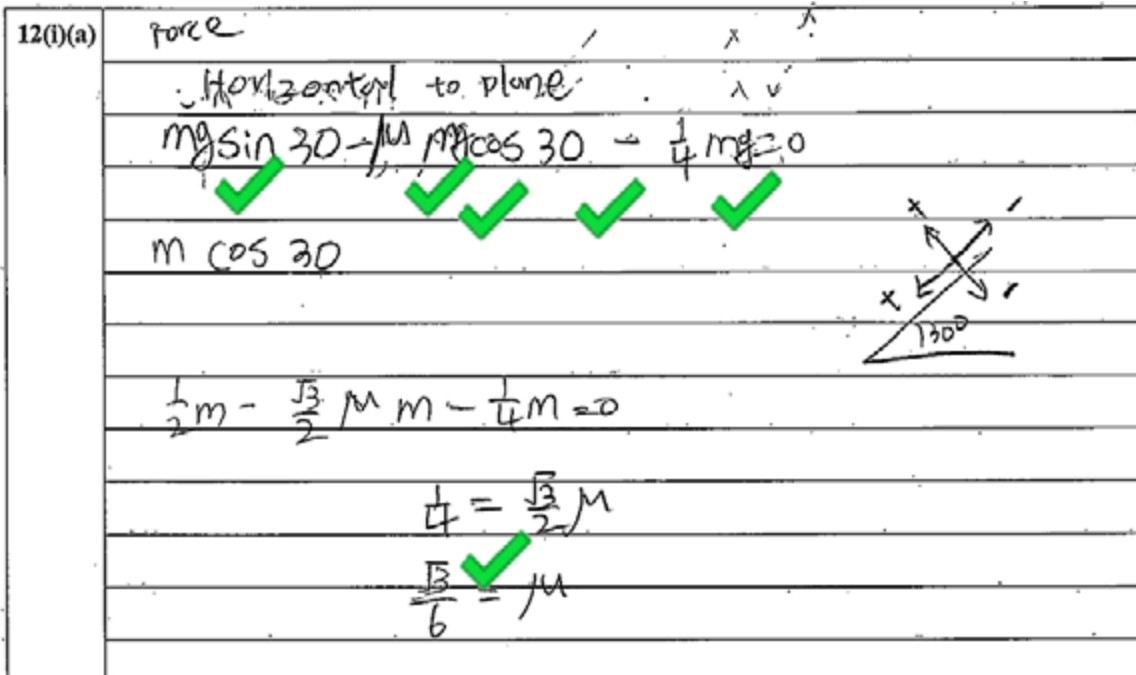 12(i)(a)
Force
Horizontal to plane
mg sin 30 - μ mg cos 30 - 1/4 mg = 0
m cos 30
30°
1/2 m - √3/2 μ m - 1/4 m = 0
1/4 = √3/2 μ
√3/6 = μ